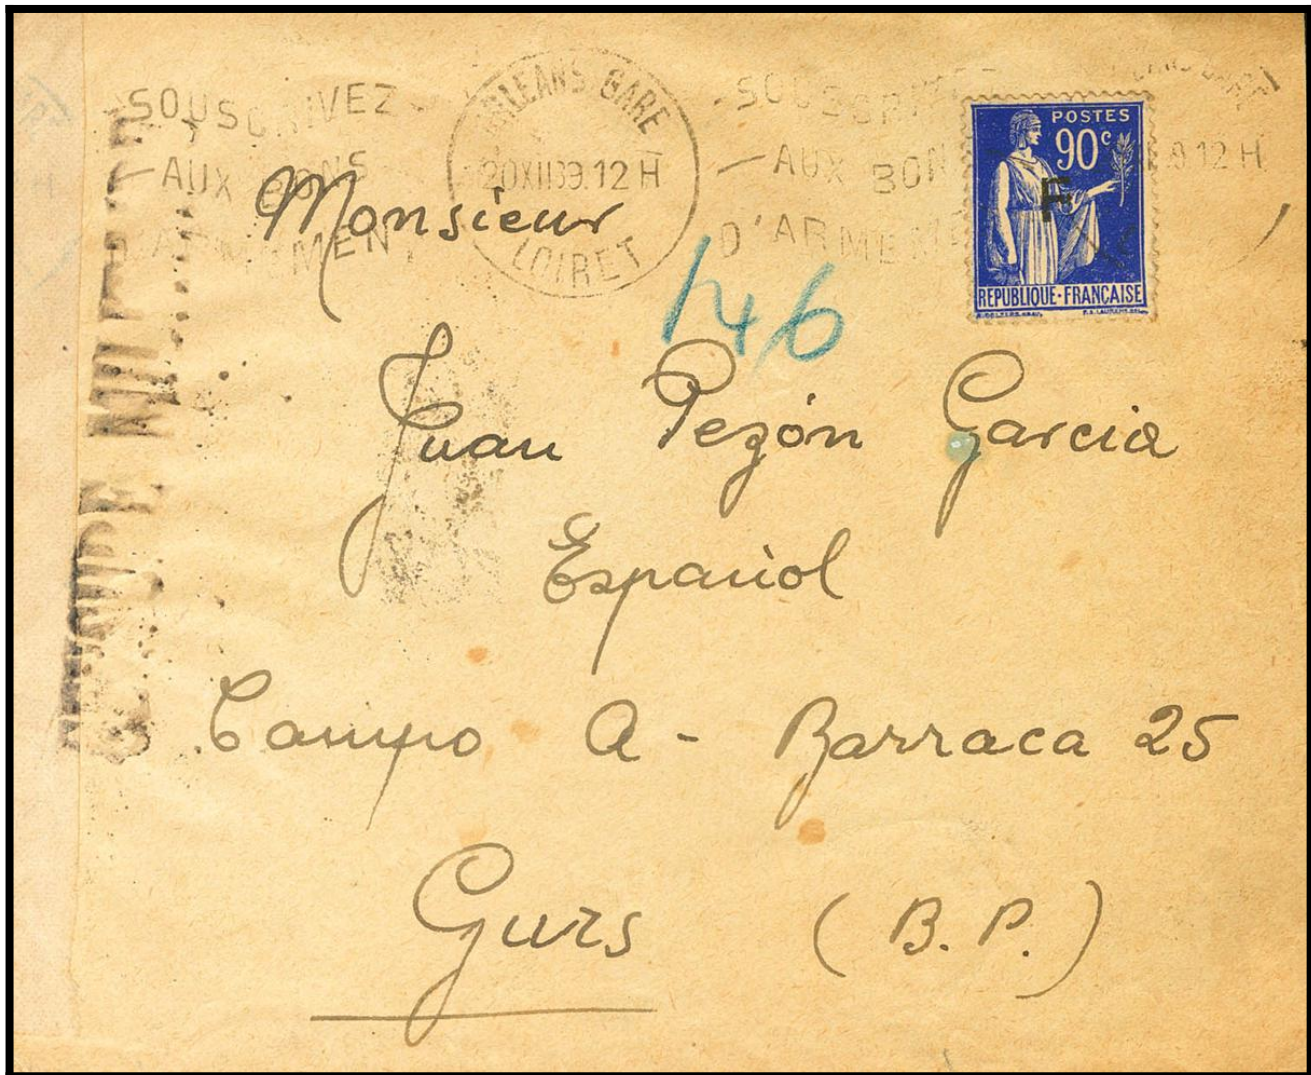 SOUSCRIVEZ
AUX BONS
D'ARMEMENT
ORLEANS GARE
20XII39.12 H
LOIRET
AUX BON
D'ARMEM
12 H
POSTES
90c
F
REPUBLIQUE·FRANÇAISE
Monsieur
146
Juan Pezón Garcia
Español
Campo A - Barraca 25
Gurs (B.P.)